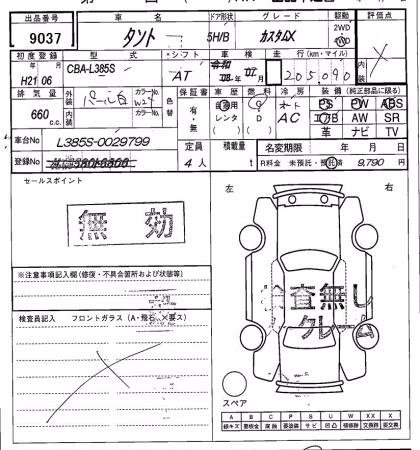 出品番号 車名 ドア形状 グレード 駆動 評価点
9037 タント 5H/B カスタムX 2WD
初度登録 型式 シフト 車検 走行(km・マイル) 内装
H21年06月 CBA-L385S AT 令和08年07月 205,090
排気量 外装 パール白 カラーNo. W24 色替 保証書 車歴 燃料 冷房 装備(純正部品に限る)
660 c.c. 内装 カラーNo. 有・無 自家用 レンタ ( ) G D ( ) オート AC PS PW ABS
エアB AW SR
革 ナビ TV
車台No L385S-0029799 定員 積載量 名変期限 年 月 日
登録No 4人 t R料金 未預託・預託済 9,790円
セールスポイント
無効
左 右
※注意事項記入欄(修復・不具合箇所および状態等)
検査員記入 フロントガラス(A・飛石・X要ス)
査無し
クレーム
スペア
A B C P S U W XX X
線キズ 要板金 腐蝕 要塗装 サビ 凹凸 補修跡 交換跡 要交換